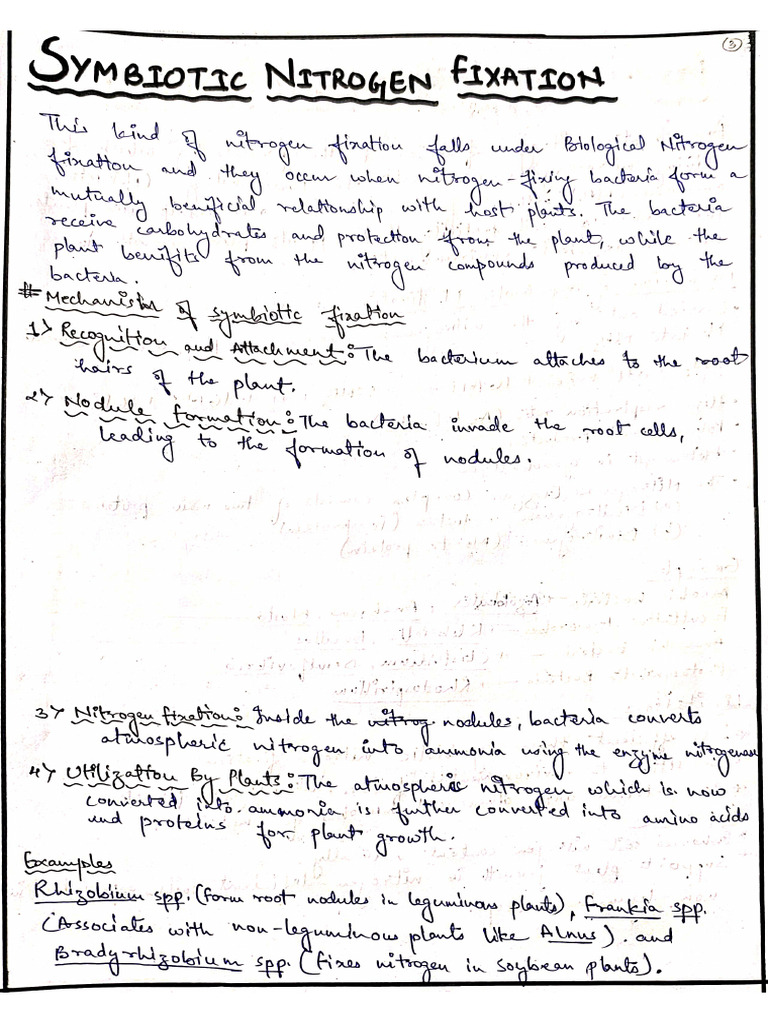 3
SYMBIOTIC NITROGEN FIXATION
This kind of nitrogen fixation falls under Biological Nitrogen
fixation and they occur when nitrogen-fixing bacteria form a
mutually beneficial relationship with host plants. The bacteria
receive carbohydrates and protection from the plant, while the
plant benifits from the nitrogen compounds produced by the
bacteria.
# Mechanism of symbiotic fixation
1> Recognition and Attachment: The bacterium attaches to the root
hairs of the plant.
2> Nodule formation: The bacteria invade the root cells,
leading to the formation of nodules.
3> Nitrogen fixation: Inside the nitrog nodules, bacteria converts
atmospheric nitrogen into ammonia using the enzyme nitrogenase
4> Utilization By Plants: The atmospheric nitrogen which is now
converted into ammonia is further converted into amino acids
and proteins for plant growth.
Examples
Rhizobium spp. (form root nodules in leguminous plants), Frankia spp.
(Associates with non-leguminous plants like Alnus). and
Bradyrhizobium spp. (fixes nitrogen in soybean plants).